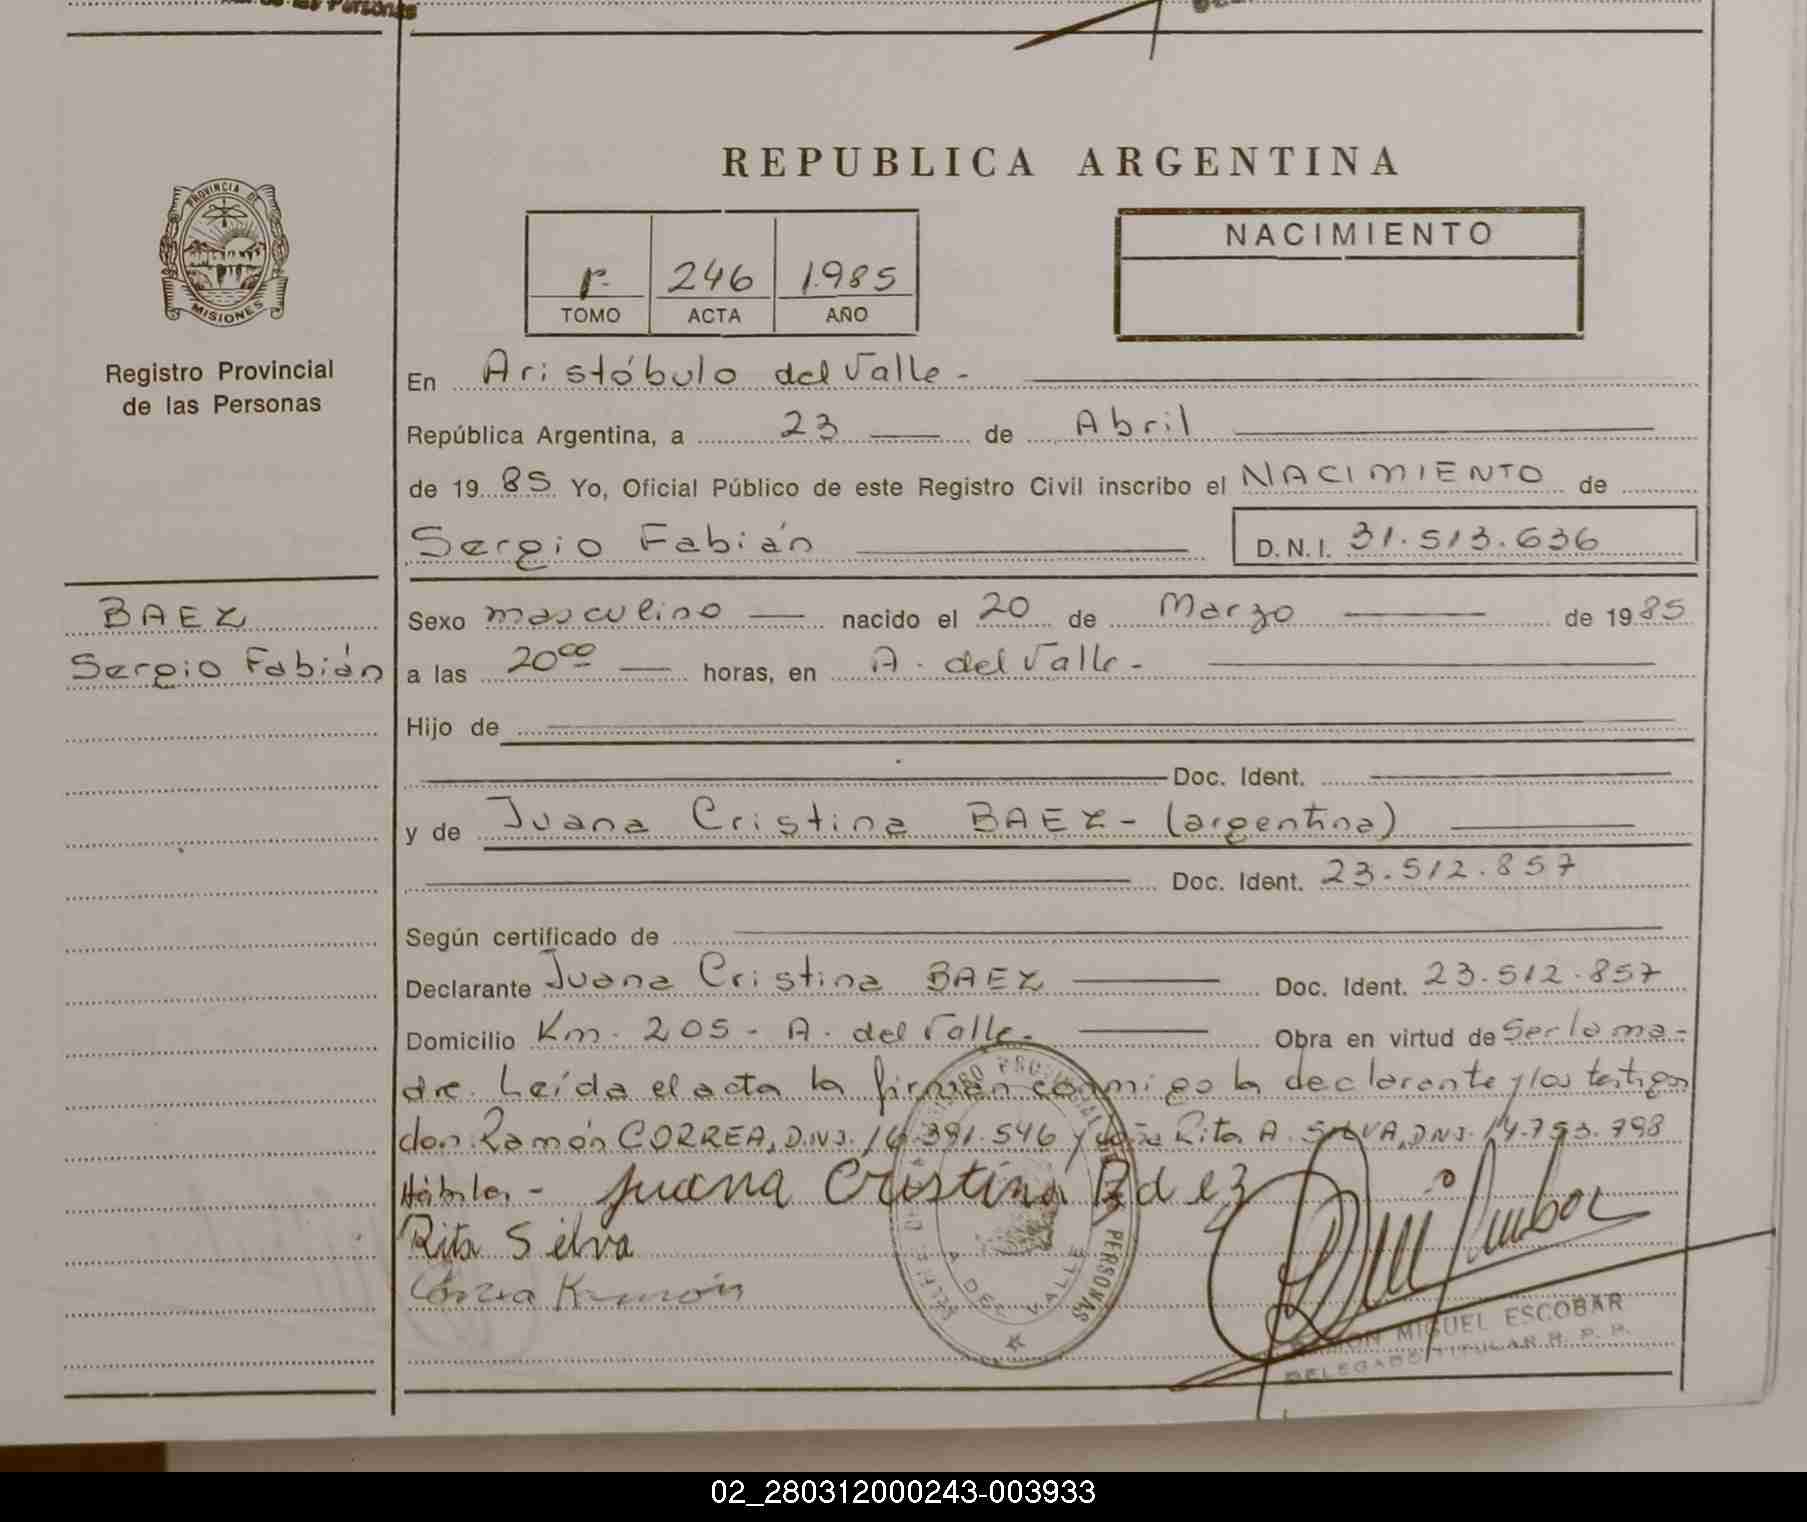 de las Personas
REPUBLICA ARGENTINA
PROVINCIA DE
MISIONES
Registro Provincial
de las Personas
246 1.985
TOMO ACTA AÑO
NACIMIENTO
En Aristóbulo del Valle -
República Argentina, a 23 de Abril
de 19 85 Yo, Oficial Público de este Registro Civil inscribo el NACIMIENTO de
Sergio Fabián D.N.I. 31.513.636
BAEZ
Sergio Fabián
Sexo masculino nacido el 20 de Marzo de 19 85
a las 20 00 horas, en A. del Valle -
Hijo de
Doc. Ident.
y de Juana Cristina BAEZ - (argentina)
Doc. Ident. 23.512.857
Según certificado de
Declarante Juana Cristina BAEZ Doc. Ident. 23.512.857
Domicilio Km. 205 - A. del Valle - Obra en virtud de Ser la ma-
dre. Leída el acta la firman conmigo la declarante y los testigos
don Ramón CORREA, D.N.I. 16.391.546 y doña Rita A. SILVA, D.N.I. 14.753.798
Hábiles - Juana Cristina Baez
Rita Silva
Correa Ramón
A. DEL VALLE
PERSONAS
MIGUEL ESCOBAR
DELEGADO TITULAR R. P. P.
02_280312000243-003933